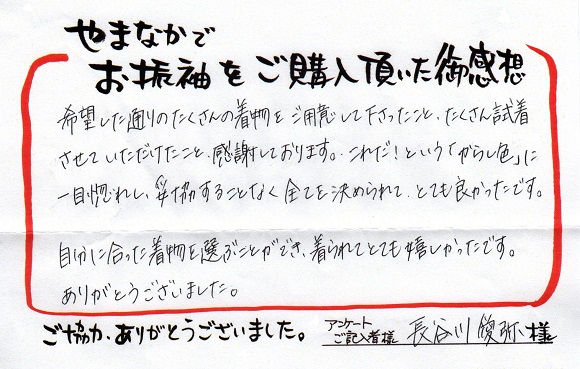 やまなかで
お振袖をご購入頂いた御感想
希望した通りのたくさんの着物をご用意して下さったこと、たくさん試着
させていただけたこと、感謝しております。これだ！という「からし色」に
一目惚れし、妥協することなく全てを決められて、とても良かったです。
自分に合った着物を選ぶことができ、着られてとても嬉しかったです。
ありがとうございました。
ご協力、ありがとうございました。 アンケート
ご記入者様 長谷川 弥 様